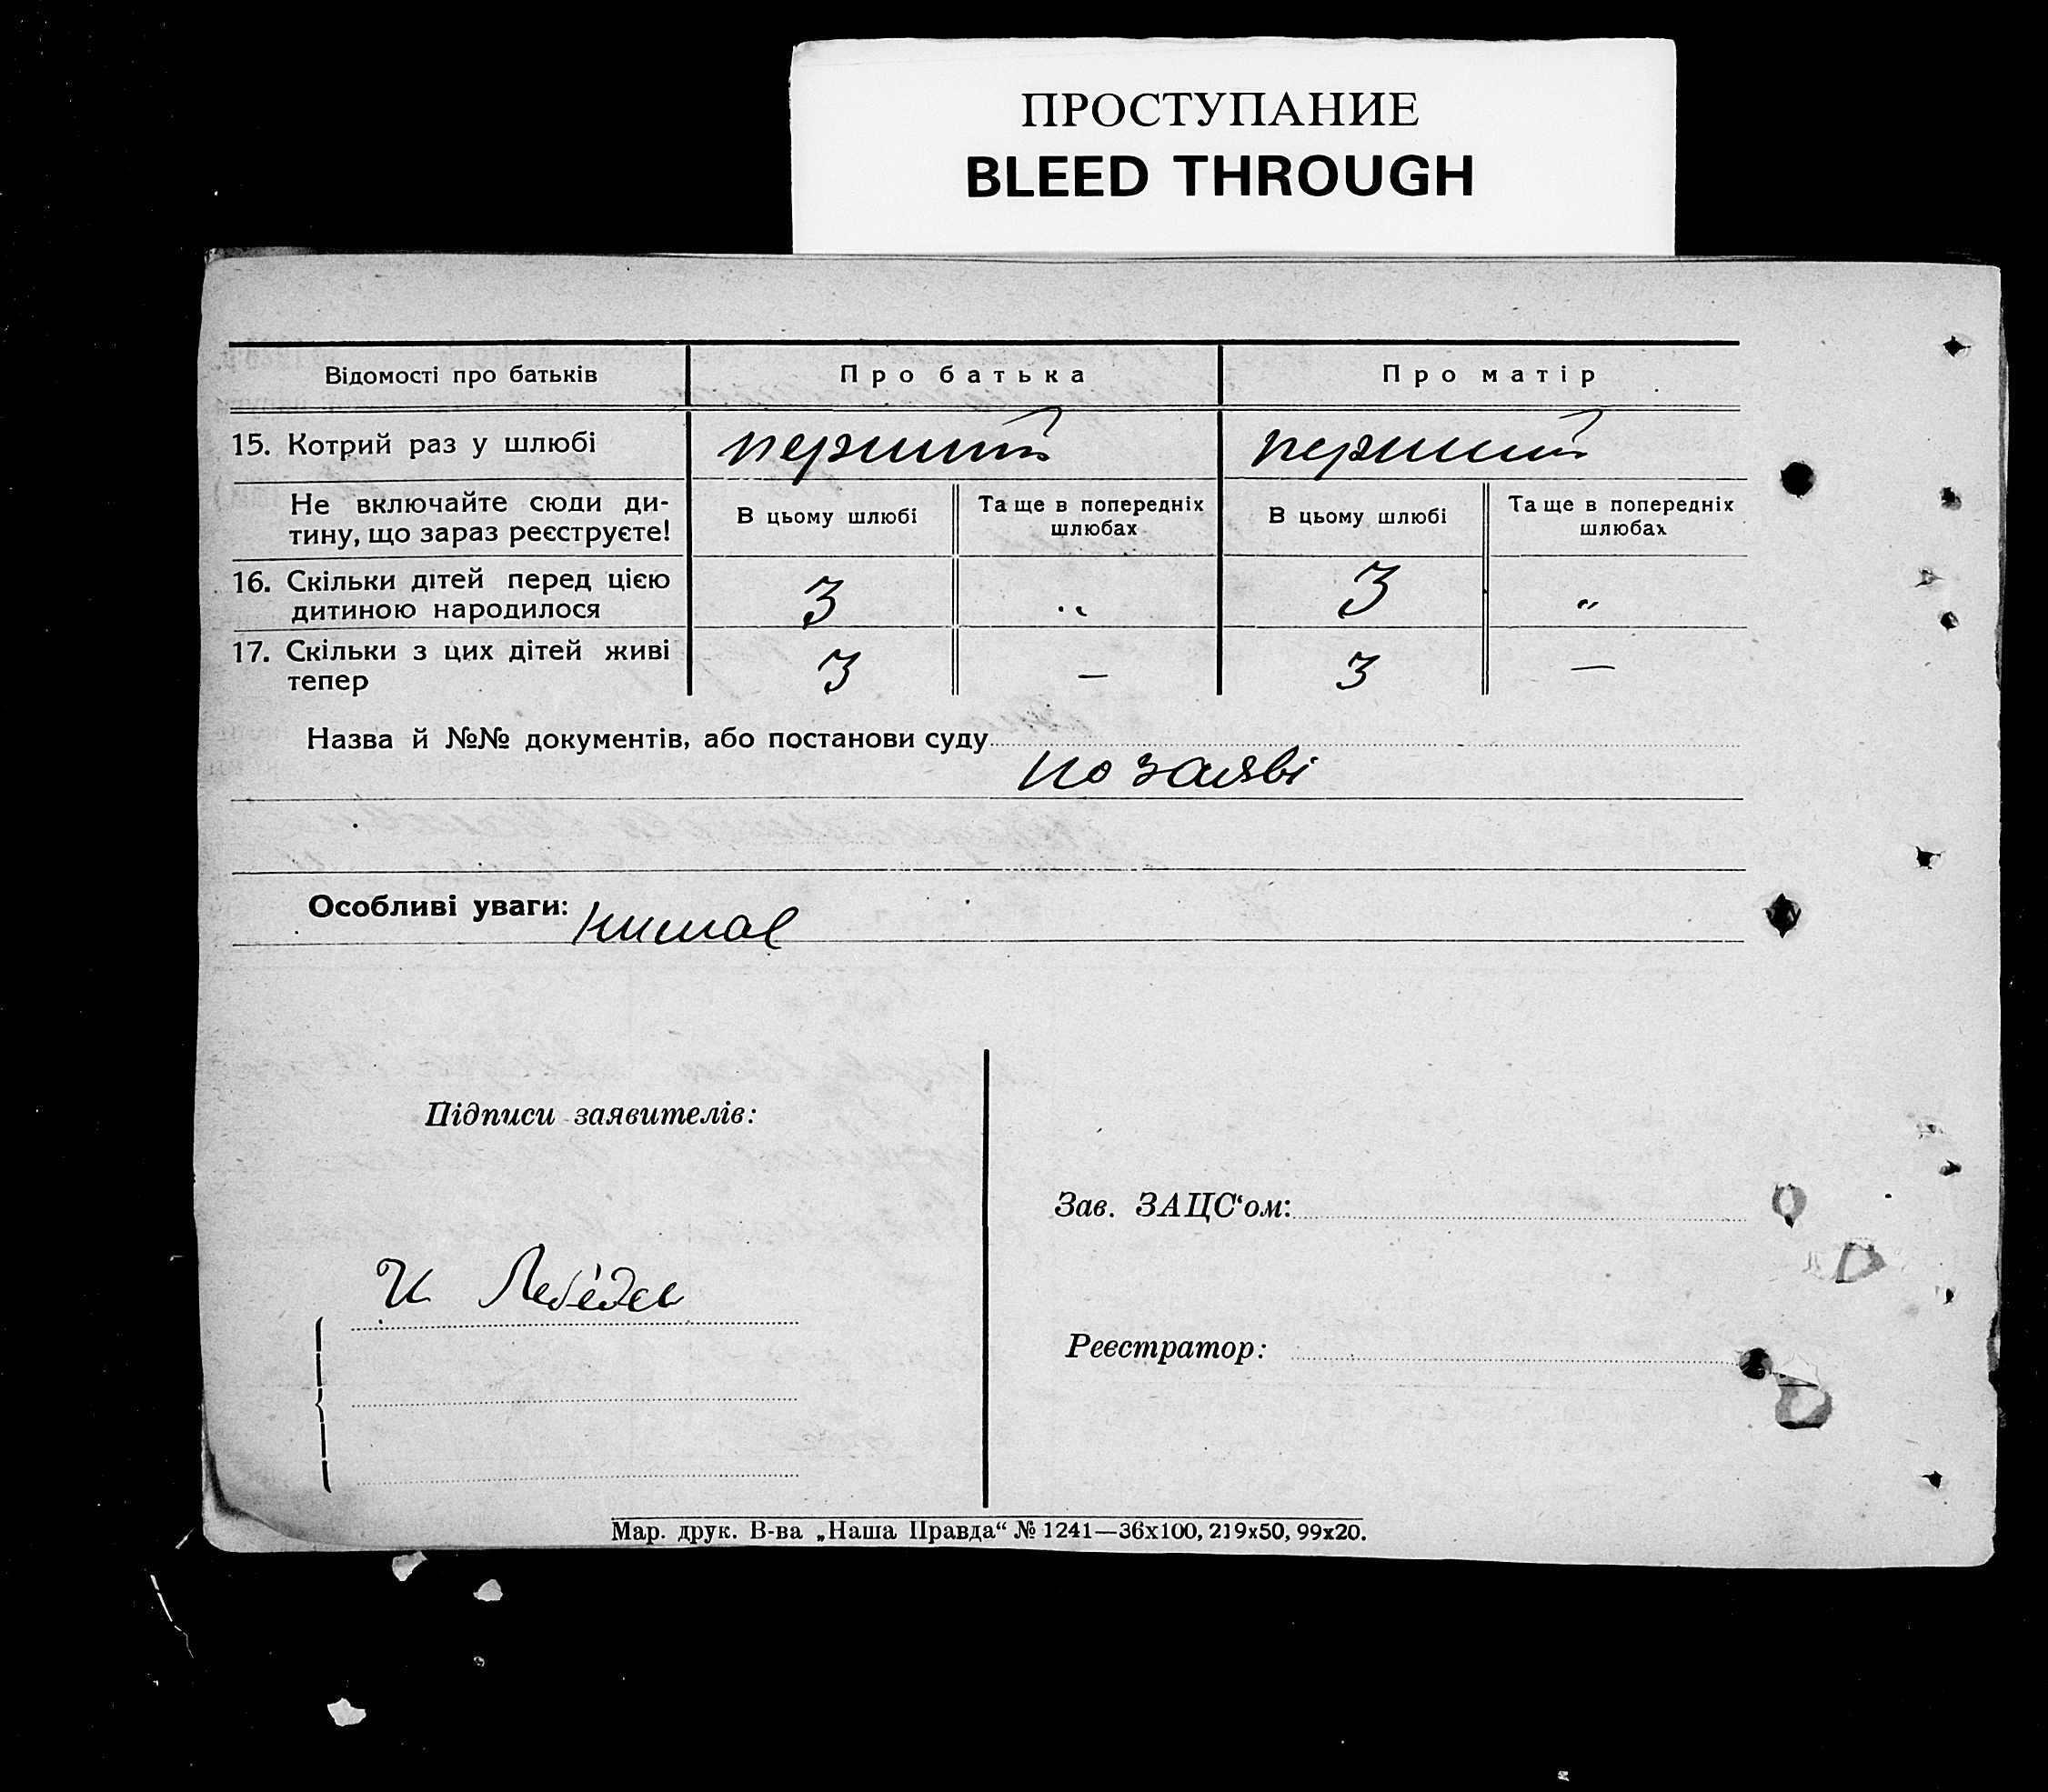 ПРОСТУПАНИЕ
BLEED THROUGH
Відомості про батьків Про батька Про матір
15. Котрий раз у шлюбі перший перший
Не включайте сюди ди-
тину, що зараз реєструєте! В цьому шлюбі Та ще в попередніх шлюбах В цьому шлюбі Та ще в попередніх шлюбах
16. Скільки дітей перед цією
дитиною народилося 3 „ 3 „
17. Скільки з цих дітей живі
тепер 3 — 3 —
Назва й №№ документів, або постанови суду
по заяві
Особливі уваги: нимає
Підписи заявителів:
Зав. ЗАЦС‘ом:
И Лебедев
Реєстратор:
Мар. друк. В-ва „Наша Правда“ № 1241—36х100, 219х50, 99х20.